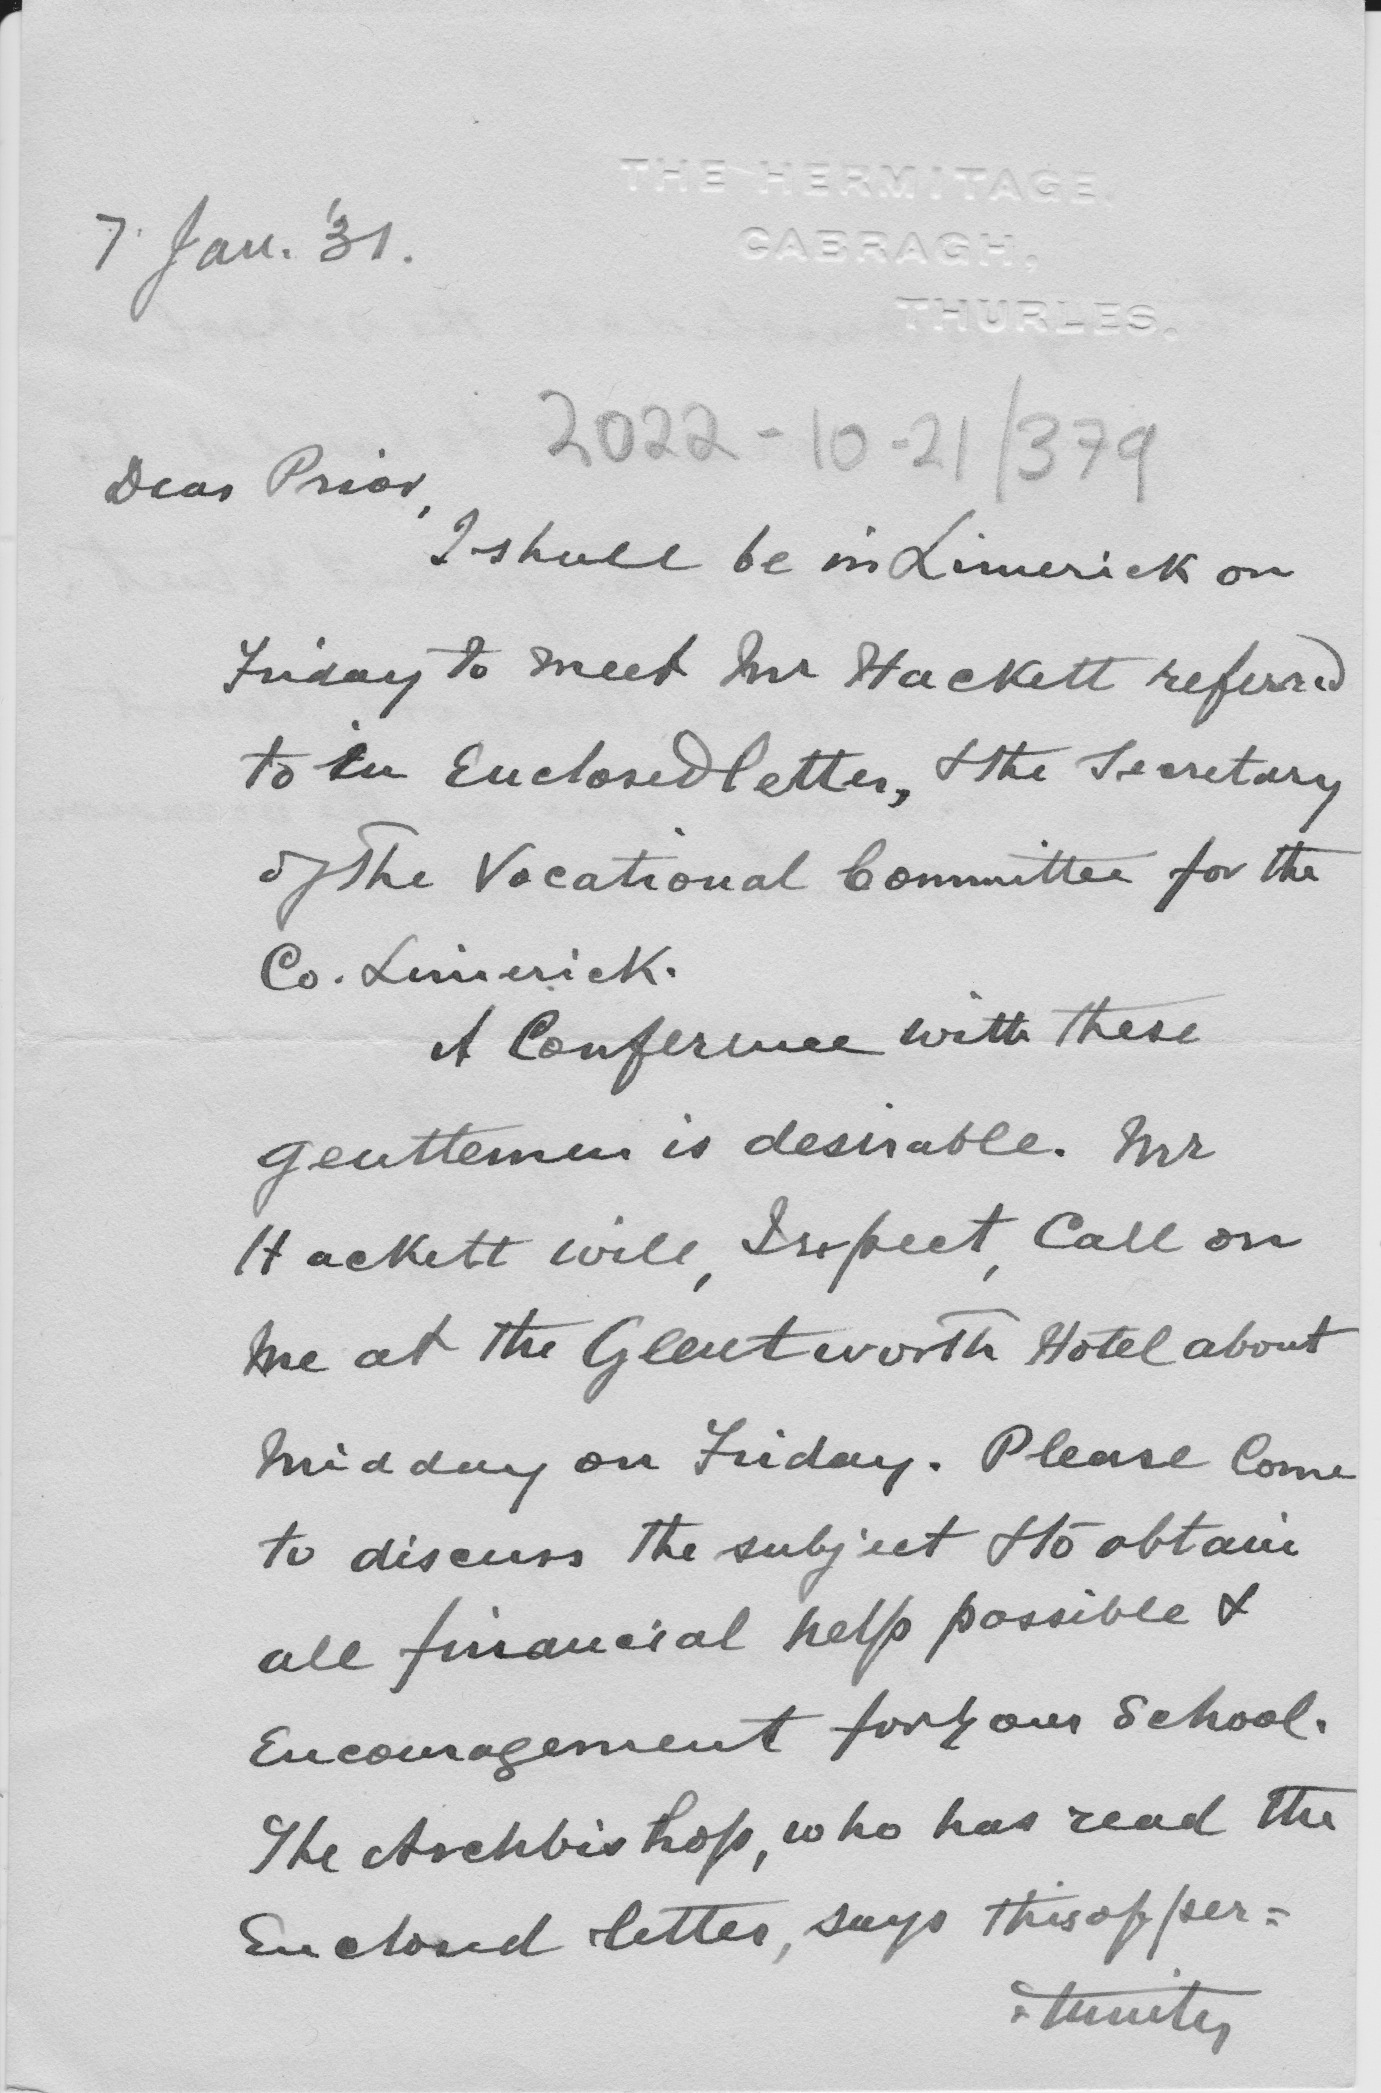 THE HERMITAGE.
CABRAGH,
THURLES.
7 Jan. '31.
2022-10-21/379
Dear Prior,
I shall be in Limerick on
Friday to meet Mr Hackett referred
to in Enclosed letter, & the Secretary
of the Vocational Committee for the
Co. Limerick.
A Conference with these
gentlemen is desirable. Mr
Hackett will, I expect, Call on
me at the Glentworth Hotel about
midday on Friday. Please Come
to discuss the subject & to obtain
all financial help possible &
Encouragement for your School.
The Archbishop, who has read the
Enclosed letter, says this opper=
=tunity